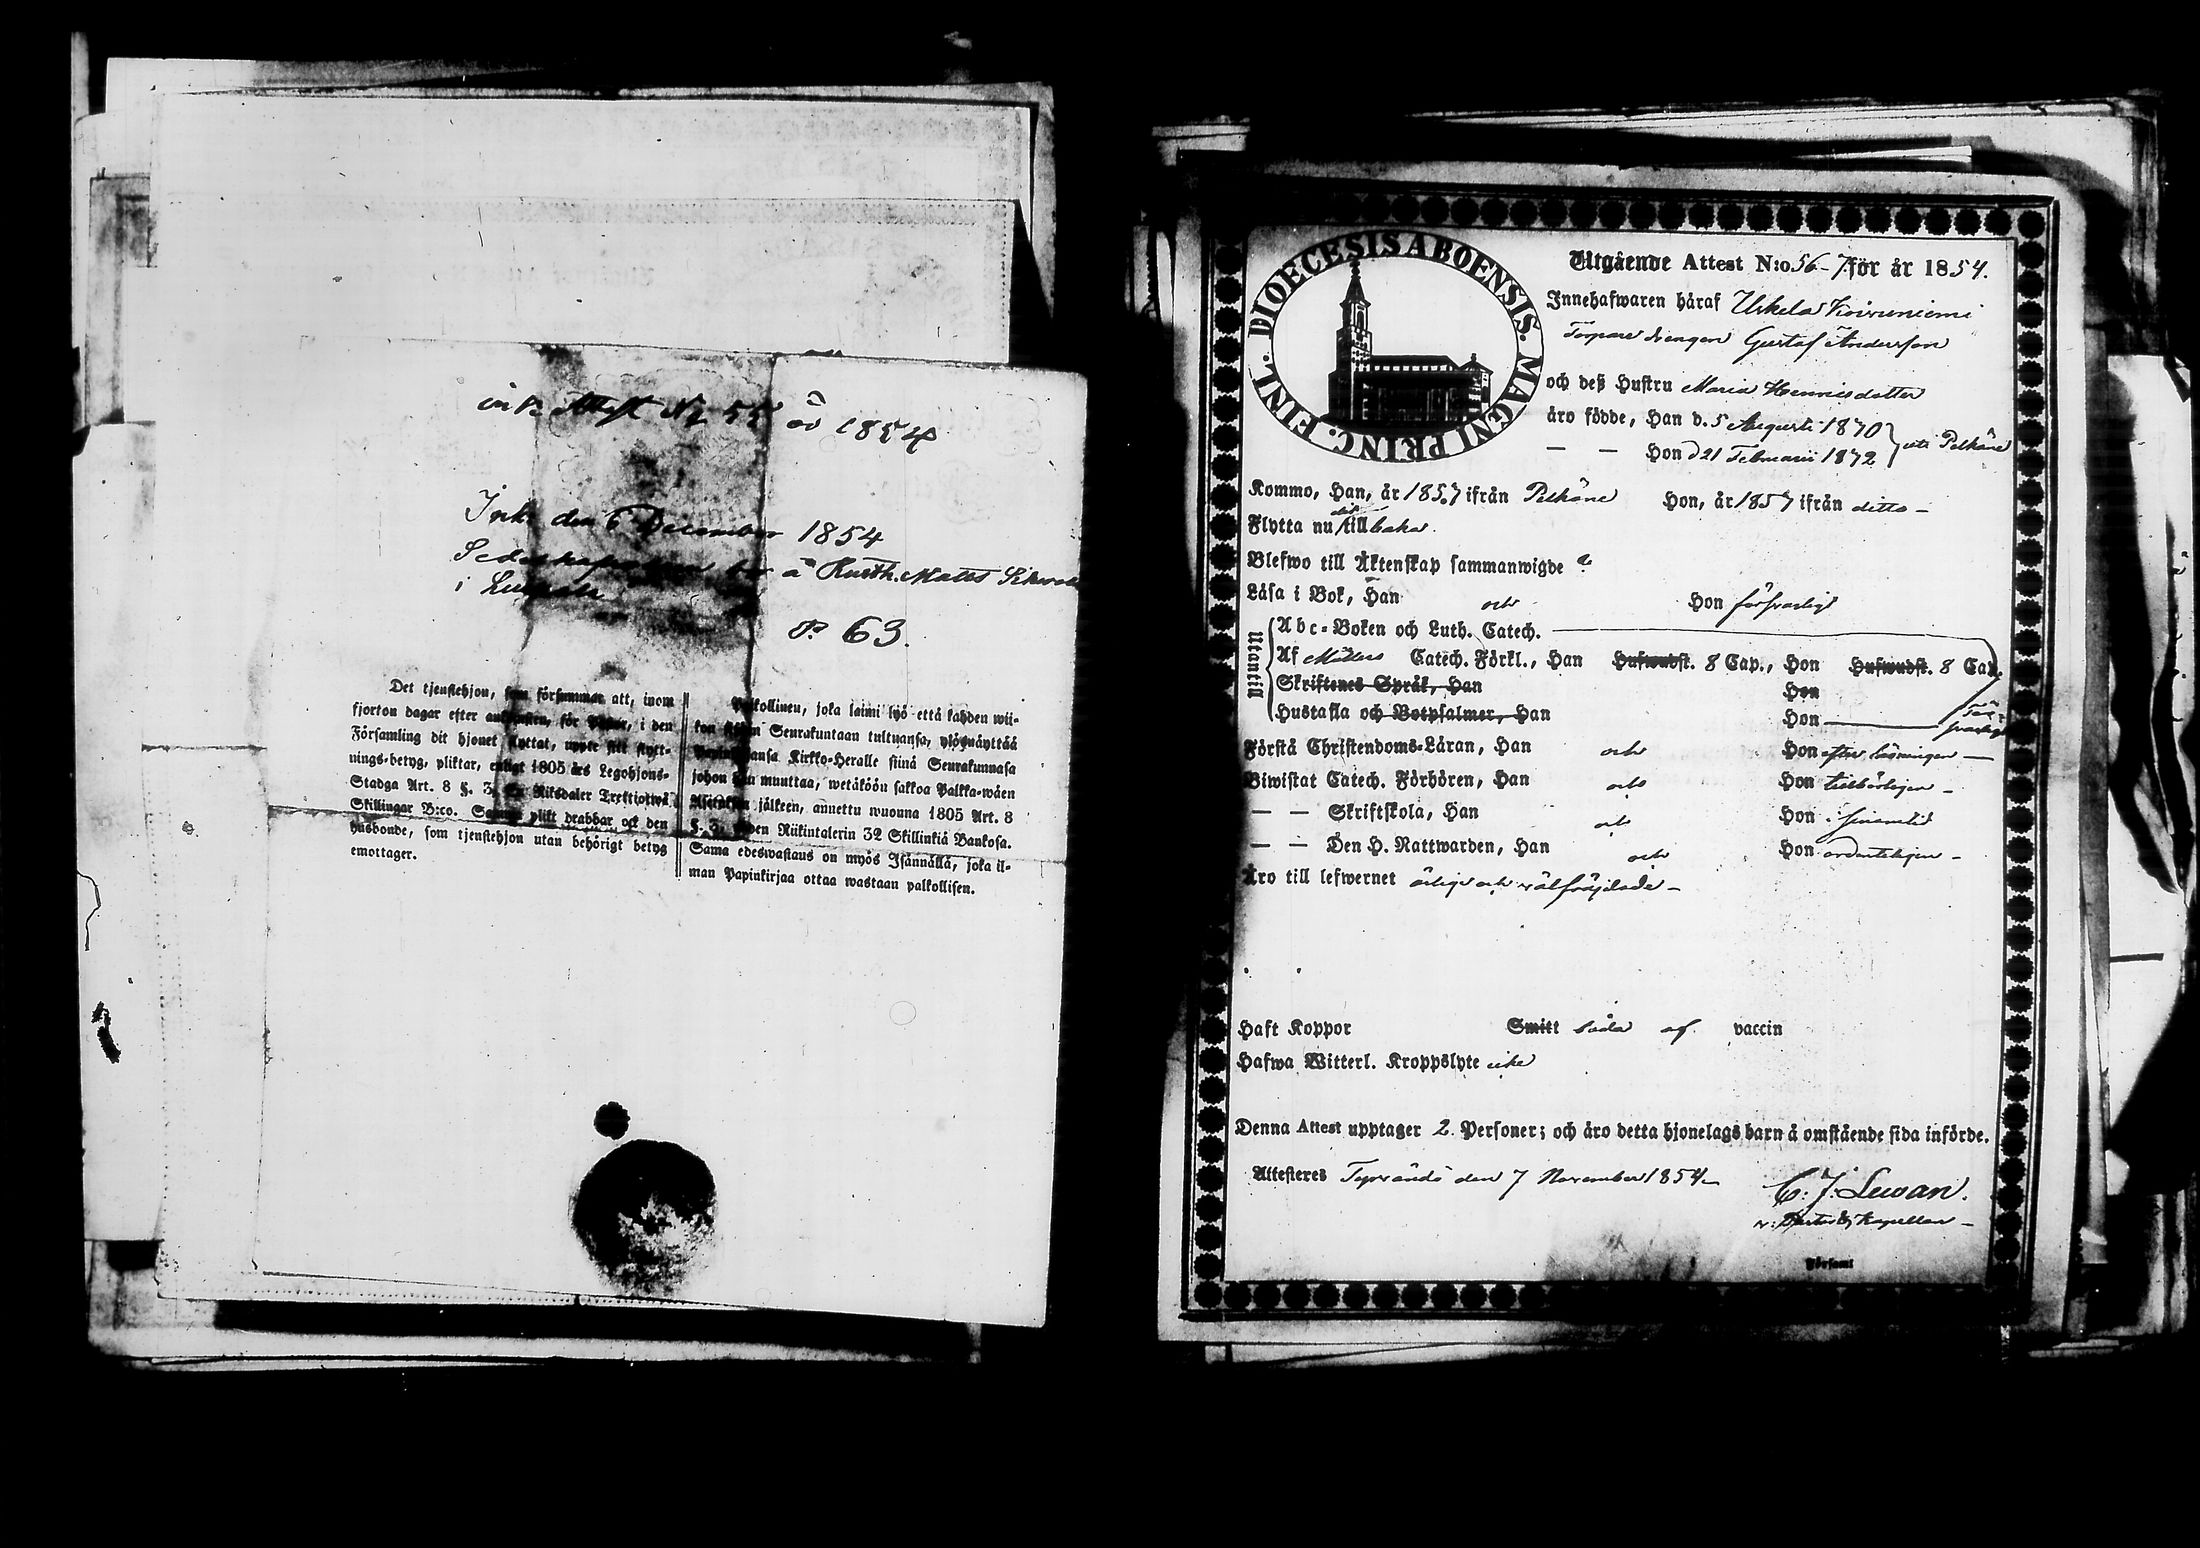 ink. Attest No 55 år 1854
Ink. den 6 December 1854
Sedes bor å Rusth. Matts
i
P. 63.
Det tjenstehjon, som försummar att, inom
fjorton dagar efter ankomsten, för Pastor, i den
Församling dit hjonet flyttat, uppte sitt flytt-
nings-betyg, pliktar, enligt 1805 års Legohjons-
Stadga Art. 8 §. 3, En Riksdaler Trettiotwå
Skillingar B:co. Samma plikt drabbar ock den
husbonde, som tjenstehjon utan behörigt betyg
emottager.
Palkollinen, joka laimi lyö että kahden wii-
kon Seurakuntaan tultuansa, ylösnäyttää
Papinkirjansa Kirkko-Heralle siinä Seurakunnasa
johon hän muuttaa, wetäköön sakkoa Palkka-wäen
Asetuksen jälkeen, annettu wuonna 1805 Art. 8
§. 3, Yhden Riikintalerin 32 Skillinkiä Bankosa.
Sama edeswastaus on myös Isännällä, joka il-
man Papinkirjaa ottaa wastaan palkollisen.
DIOECESIS ABOENSIS. MAGNI PRINC. FINL.
Utgående Attest N:o 56-7 för år 1854.
Innehafwaren häraf Uskela Koivuniemi
Torpare drengen Gustaf Andersson
och deß Hustru Maria Henricsdotter
äro födde, Han d. 5 Augusti 1820
— — Hon d 21 Februarii 1822 uti Pelkäne
Kommo, Han, år 1857 ifrån Pelkäne Hon, år 1857 ifrån ditto —
Flytta nu dit tillbaka
Blefwo till Äktenskap sammanwigde
Läsa i Bok, Han och Hon försvarligt
Utantill
Abc-Boken och Luth. Catech.
Af Möllers Catech. Förkl., Han Hufwudst. 8 Cap., Hon Hufwudst. 8 Cap.
Skriftenes Språk, Han Hon
Hustafla och Botpsalmer, Han Hon försvarligt
Förstå Christendoms-Läran, Han och Hon efter läsningen —
Biwistat Catech. Förhören, Han och Hon tillbörligen —
— — Skriftskola, Han och Hon i sinom tid
— — Den H. Nattwarden, Han och Hon ordenteligen —
Äro till lefwernet ärlige och välfräjdade —
Haft Koppor Smitt båda af vaccin
Hafwa Witterl. Kroppslyte icke
Denna Attest upptager 2 Personer; och äro detta hjonelags barn å omstående sida införde.
Attesteres Tyrvändö den 7 November 1854 —
C. J. Lewan.
v. Pastor & Kapellan —
Församl